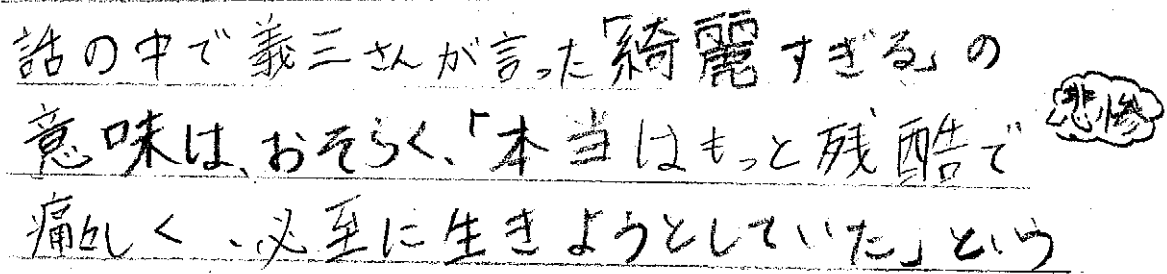 話の中で義三さんが言った「綺麗すぎる」の
意味は、おそらく、「本当はもっと残酷で
悲惨
痛々しく、必至に生きようとしていた」という